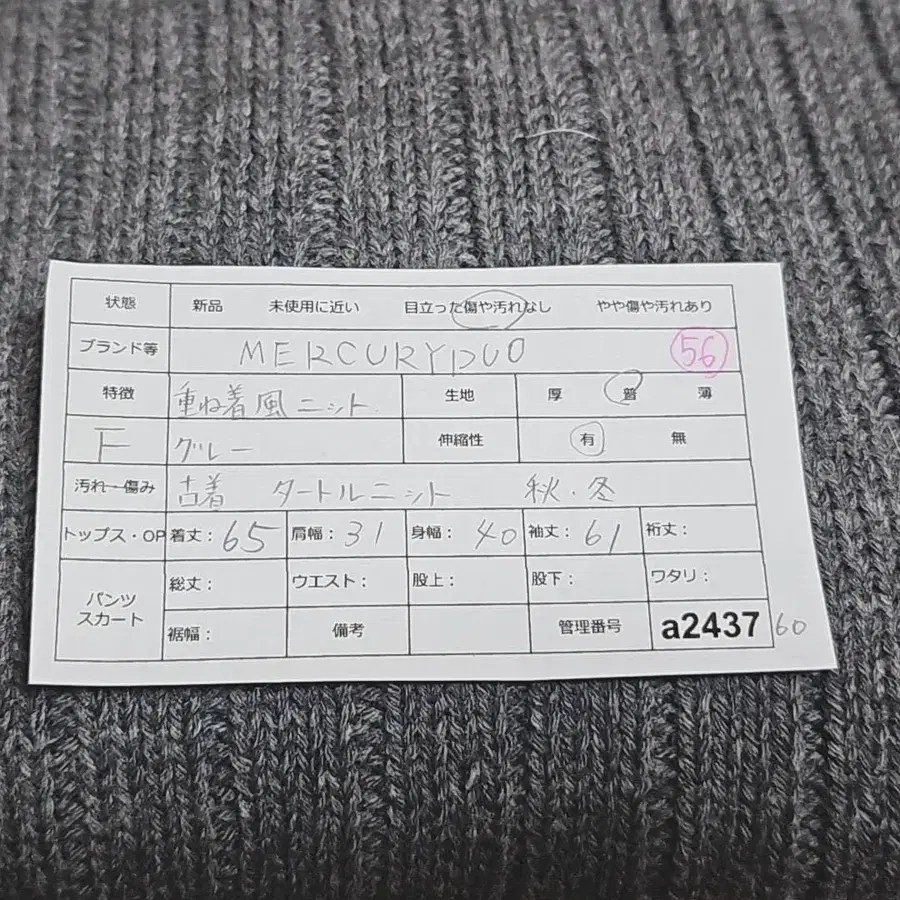 状態 新品 未使用に近い 目立った傷や汚れなし やや傷や汚れあり
ブランド等 MERCURYDUO 56
特徴 重ね着風ニット 生地 厚 普 薄
F グレー 伸縮性 有 無
汚れ・傷み 古着 タートルニット 秋・冬
トップス・OP 着丈：65 肩幅：31 身幅：40 袖丈：61 裄丈：
パンツ スカート 総丈： ウエスト： 股上： 股下： ワタリ：
裾幅： 備考 管理番号 a2437 60